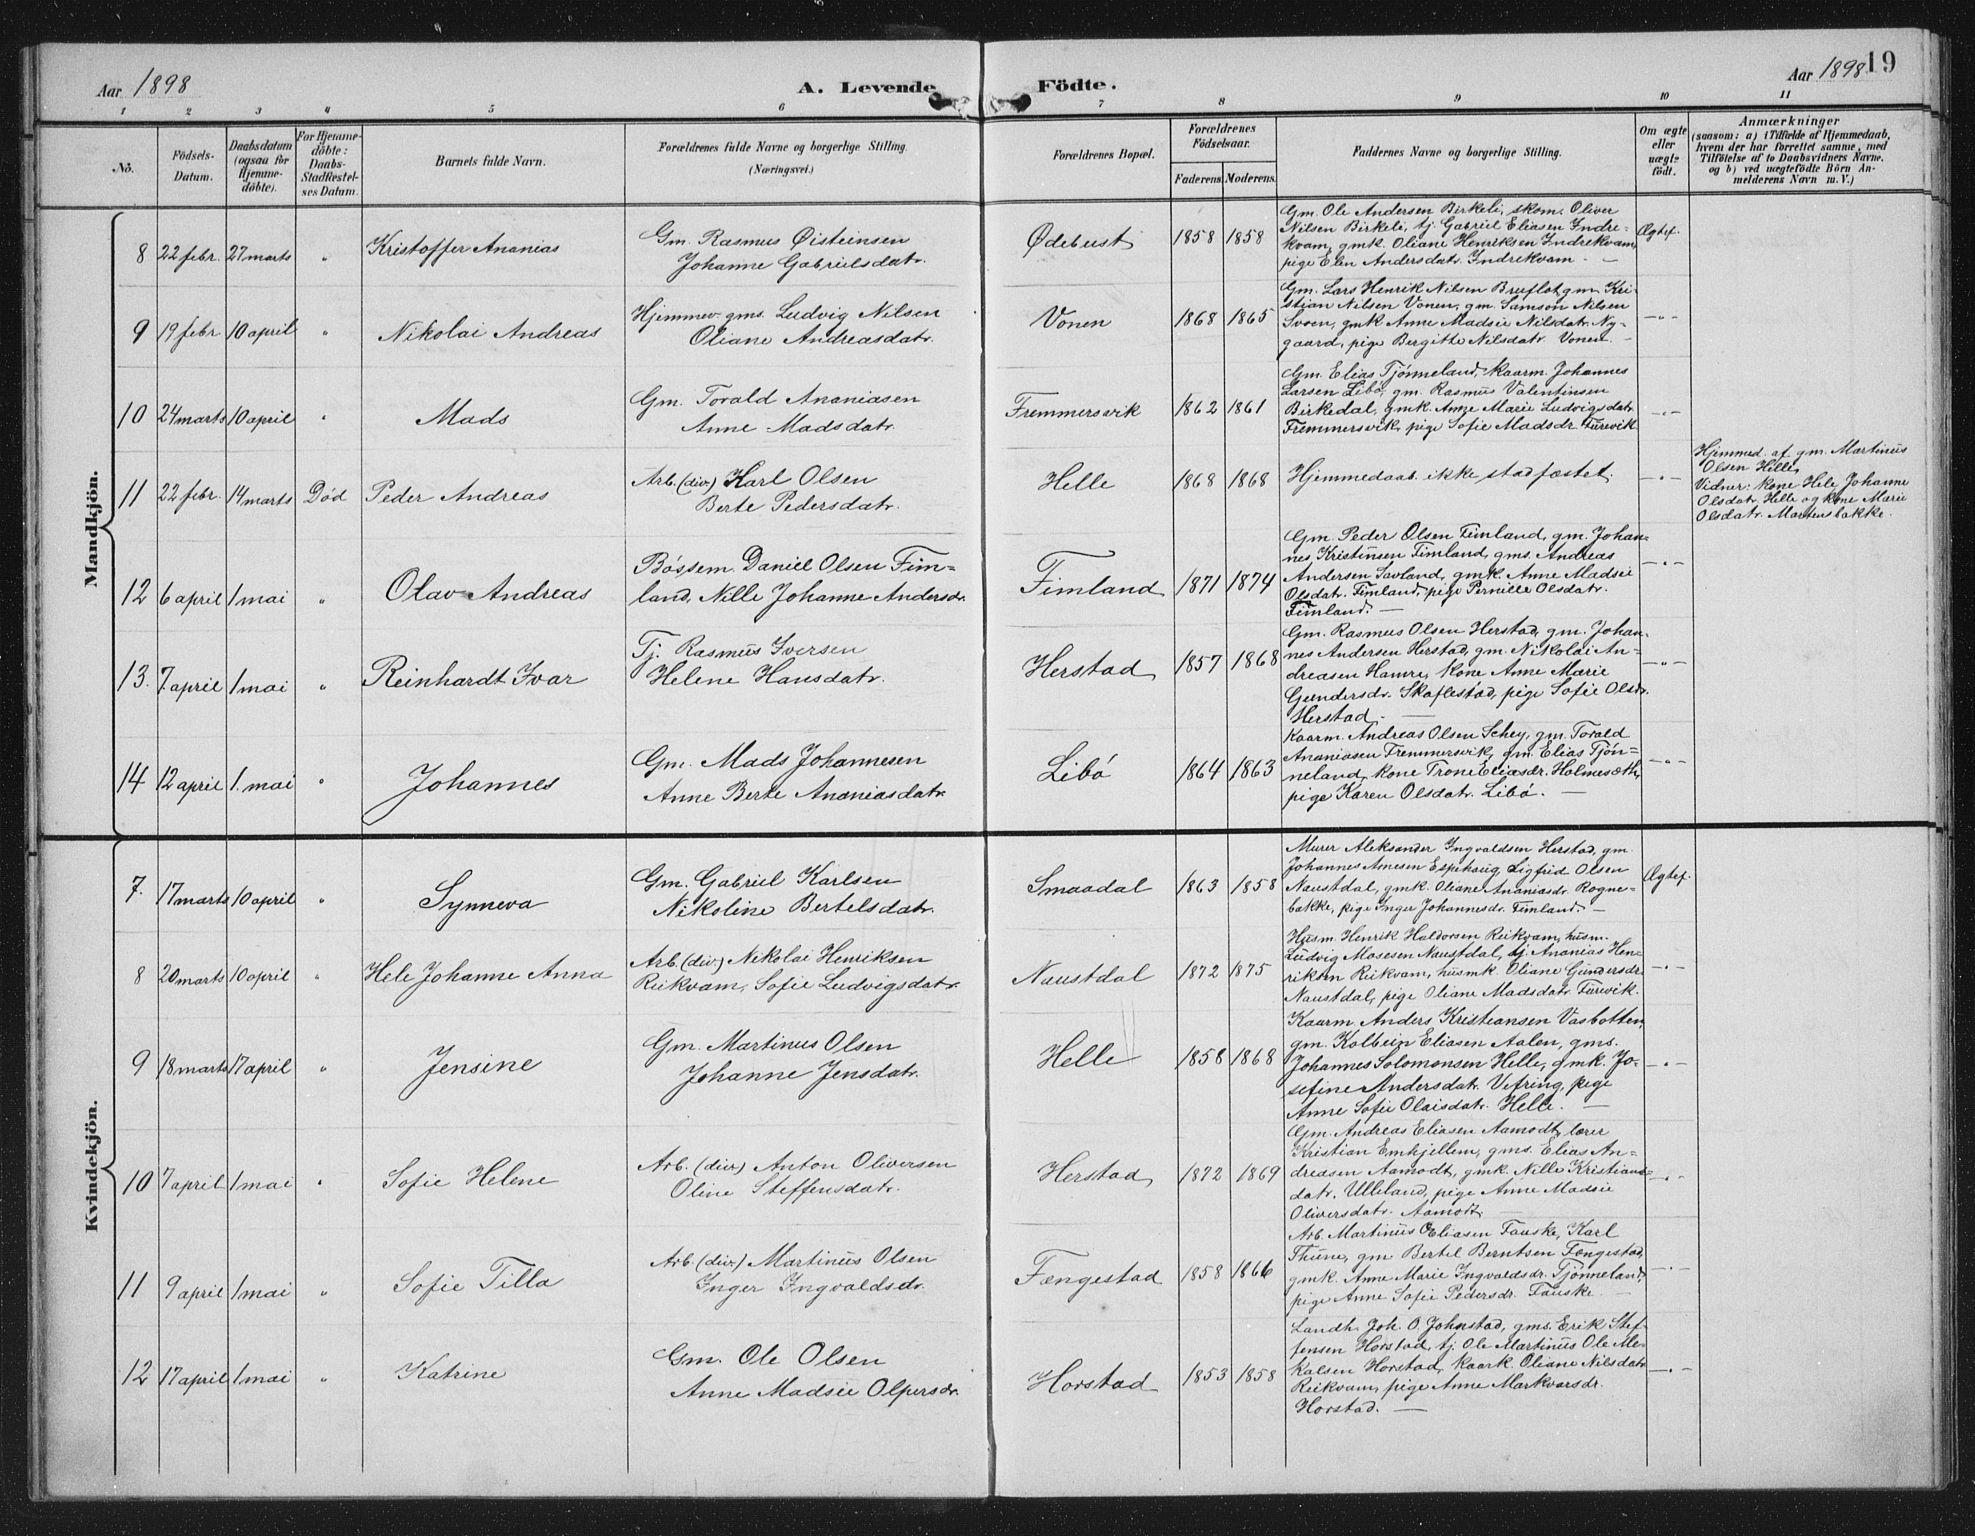 Aar 1898
A. Levende
Födte.
Aar 1898
19
1 2 3 4 5 6 7 8 9 10 11
No.
Födsels-
Datum.
Daabsdatum
(ogsaa for
Hjemme-
döbte).
For Hjemme-
döbte:
Daabs-
Stadfæstel-
ses Datum.
Barnets fulde Navn.
Forældrenes fulde Navne og borgerlige Stilling.
(Næringsvei.)
Forældrenes Bopæl.
Forældrenes
Födselsaar.
Faderens. Moderens.
Faddernes Navne og borgerlige Stilling.
Om ægte
eller
uægte
födt.
Anmærkninger
(saasom: a) i Tilfælde af Hjemmedaab,
hvem der har forrettet samme, med
Tilföielse af to Daabsvidners Navne.
og b) ved uægtefödte Börn An-
melderens Navn m. V.)
Mandkjön.
8 22 febr. 27 marts " Kristoffer Ananias
Gm. Rasmus Øisteinsen
Johanne Gabrielsdatr.
Ødebust 1858 1858
Gm. Ole Andersen Birkeli, skom. Oliver
Nilsen Birkeli, tj. Gabriel Eliasen Indre-
kvam, gmk. Oliane Henriksen Indrekvam,
pige Elen Andersdatr. Indrekvam. —
Ægtef.
9 19 febr. 10 april " Nikolai Andreas
Hjemmev. gms. Ludvig Nilsen
Oliane Andreasdatr.
Vonen 1868 1865
Gm. Lars Henrik Nilsen Bruflot, gm. Kri-
stian Nilsen Vonen, gm. Samson Nilsen
Svoen, gmk. Anne Madsie Nilsdatr. Ny-
gaard, pige Bergitte Nilsdatr. Vonen. —
— " —
10 24 marts 10 april " Mads
Gm. Torald Ananiasen
Anne Madsdatr.
Fremmersvik 1862 1861
Gm. Elias Tjønneland, kaarm. Johannes
Larsen Libø, gm. Rasmus Valentinsen
Birkedal, gmk. Anne Marie Ludvigsdatr.
Fremmersvik, pige Sofie Madsdr. Furevik
— " —
11 22 febr. 14 marts Død Peder Andreas
Arb. (div.) Karl Olsen
Berte Pedersdatr.
Helle 1868 1868
Hjemmedaab ikke stadfæstet.
— " —
Hjemmed. af gm. Martinus
Olsen Helle,
Vidner: kone Hele Johanne
Olsdatr. Helle og kone Marie
Olsdatr. Martensbakke.
12 6 april 1 mai " Olav Andreas
Bøssem. Daniel Olsen Fim-
land, Nille Johanne Andersdr.
Fimland 1871 1874
Gm. Peder Olsen Fimland, gm. Johan-
nes Kristensen Fimland, gms. Andreas
Andersen Savland, gmk. Anne Madsie
Olsdatr. Fimland, pige Pernille Olsdatr.
Fimland. —
— " —
13. 7 april 1 mai " Reinhardt Ivar
Tj. Rasmus Iversen
Helene Hansdatr.
Herstad 1857 1868
Gm. Rasmus Olsen Herstad, gm. Johan-
nes Andersen Herstad, gm. Nikolai An-
dreasen Hamre, kone Anne Marie
Gundersdr. Skaflestad, pige Sofie Olsdr.
Herstad. —
— " —
14 12 april 1. mai " Johannes
Gm. Mads Johannesen
Anne Berte Ananiasdatr.
Libø 1864 1863
Kaarm. Andreas Olsen Schey, gm. Torald
Ananiasen Fremmersvik, gm. Elias Tjøn-
neland, kone Trone Eliasdr. Holmesæth,
pige Karen Olsdatr. Libø. —
— " —
Kvindekjön.
7. 17 marts 10 april " Synneva
Gm. Gabriel Karlsen
Nikoline Bertelsdatr.
Smaadal 1863 1858
Murer Aleksander Ingvaldsen Herstad, gm.
Johannes Arnesen Espehaug, Sigfrid Olsen
Naustdal, gmk. Oliane Ananiasdr. Rogne-
bakke, pige Inger Johannesdr. Fimland. —
Ægtef.
8 20 marts 10 april " Hele Johanne Anna
Arb. (div.) Nikolai Henriksen
Reikvam, Sofie Ludvigsdatr.
Naustdal 1872 1875
Husm. Henrik Haldorsen Reikvam, husm.
Ludvig Mosesen Naustdal, tj. Ananias Hen-
riksen Reikvam, husmk. Oliane Gundersdr.
Naustdal, pige Oliane Madsdatr. Furevik.
— " —
9 18 marts 17 april " Jensine
Gm. Martinus Olsen
Johanne Jensdatr.
Helle 1858 1868
Kaarm. Anders Kristiansen Vasbotten,
gm. Kolbein Eliasen Aalen, gms.
Johannes Solomonsen Helle, gmk. Jo-
sefine Andersdatr. Vefring, pige
Anne Sofie Olaisdatr. Helle. —
— " —
10 7 april 1 mai " Sofie Helene
Arb. (div.) Anton Oliversen
Oline Steffensdatr.
Herstad 1872 1869
Gm. Andreas Eliasen Aamodt, lærer
Kristian Emhjellem, gms. Elias An-
dreasen Aamodt, gmk. Nille Kristians-
datr. Ulleland, pige Anne Madsie
Oliversdatr. Aamodt. —
— " —
11 9 april 1 mai " Sofie Tilla
Arb. (div.) Martinus Olsen
Inger Ingvaldsdr.
Fængestad 1858 1866
Arb. Martinus Eliasen Fauske, Karl
Thune, gm. Bertel Berntsen Fængestad,
gmk. Anne Marie Ingvaldsdr. Tjønneland,
pige Anne Sofie Pedersdr. Fauske. —
— " —
12 17 april 1 mai " Katrine
Gm. Ole Olsen
Anne Madsie Olpersdr.
Horstad 1853 1858
Landh. Joh. O. Johnstad, gms. Erik Stef-
fensen Horstad, tj. Ole Martinus Ole Me-
kalsen Horstad, kaark. Oliane Nilsdatr.
Reikvam, pige Anne Markvarsdr.
Horstad. —
— " —